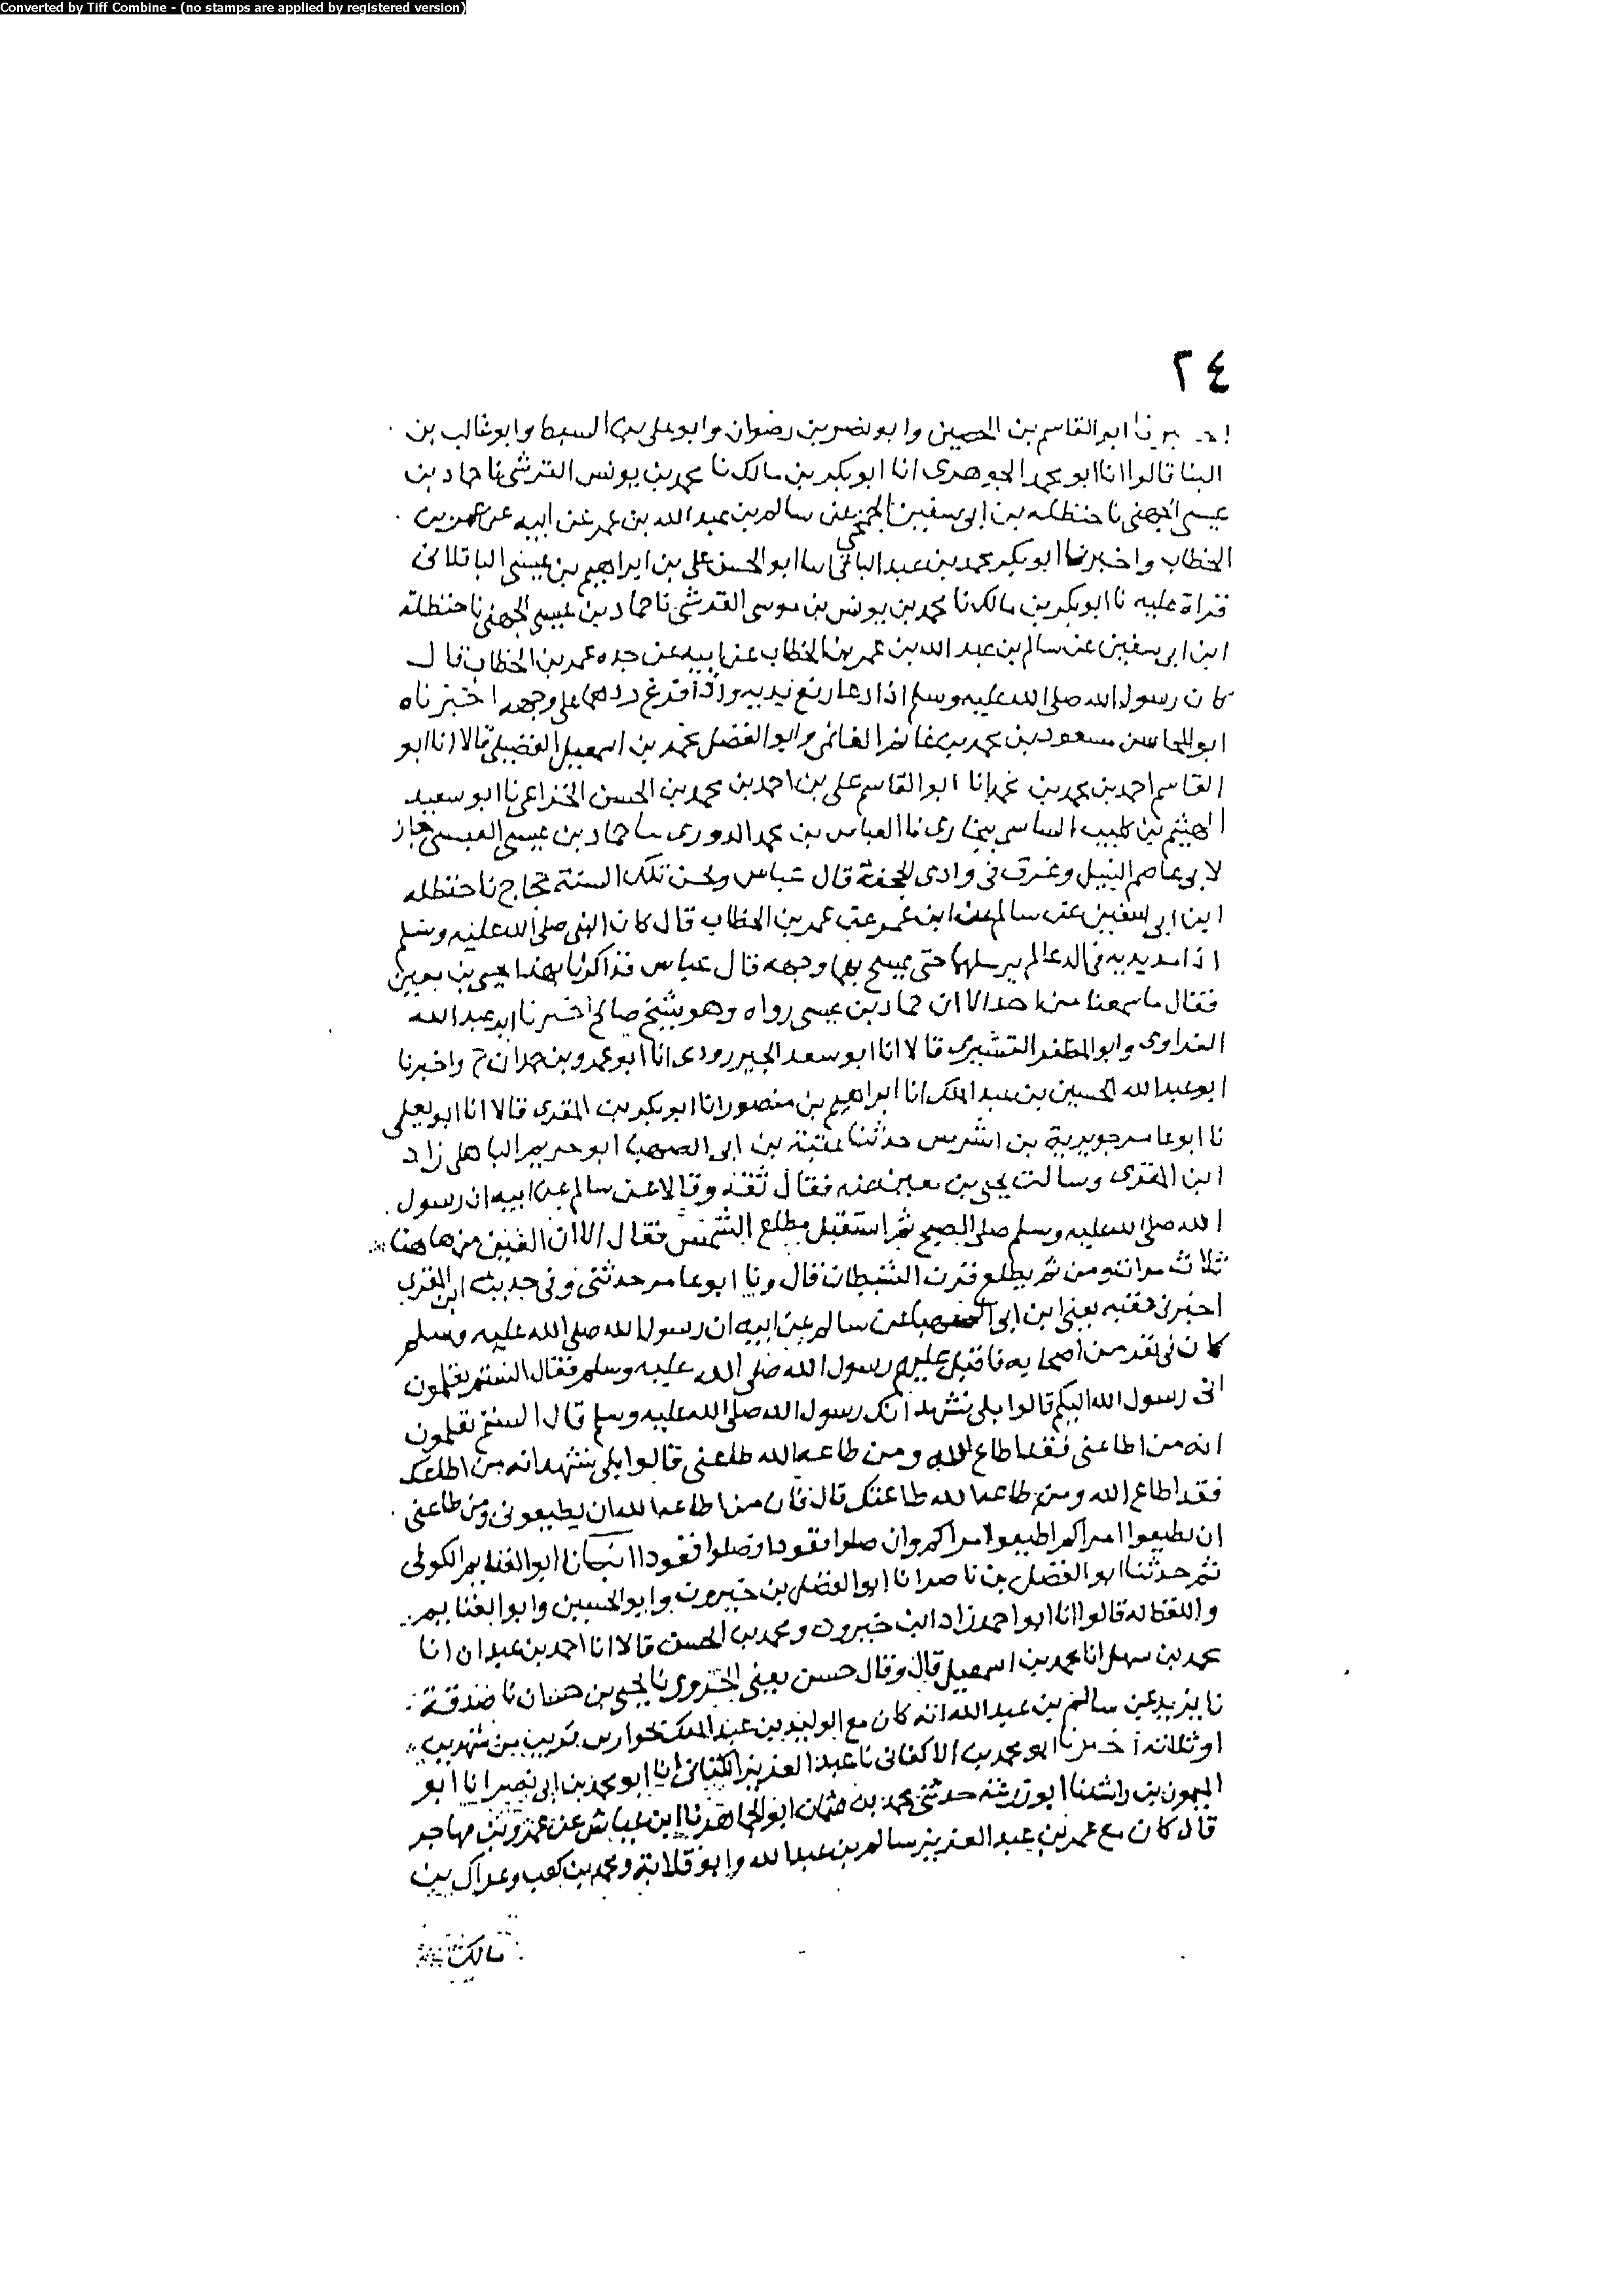 Converted by Tiff Combine - (no stamps are applied by registered version)
٢٤
ابو القاسم بن الحصين وابو نصر بن رضوان وابو على بن السبط وابو غالب بن
البنا قالوا انا ابو محمد الجوهرى انا ابو بكر بن مالك نا محمد بن يونس القرشى نا حماد بن
عيسى الجهنى نا حنظله بن ابى سفين الجمحى عن سالم بن عبد الله بن عمر عن ابيه عن عمر بن
الخطاب واخبرنا ابو بكر محمد بن عبد الباقى نا ابو الحسن على بن ابراهيم بن عيسى الباقلانى
قراة عليه نا ابو بكر بن مالك نا محمد بن يونس بن موسى القرشى نا حماد بن عيسى الجهنى نا حنظلة
ابن ابى سفين عن سالم بن عبد الله بن عمر بن الخطاب عن ابيه عن جده عمر بن الخطاب قال
كان رسول الله صلى الله عليه وسلم اذا دعا رفع يديه واذا فرغ ردهما على وجهه اخبرناه
ابو المحاسن مسعود بن محمد بن غانم الغانمى وابو الفضل محمد بن اسمعيل الفضيلى قالا انا ابو
القاسم احمد بن محمد بن محمد انا ابو القاسم على بن احمد بن محمد بن الحسن الخزاعى نا ابو سعيد
الهيثم بن كليب الساسى ببخارى نا العباس بن محمد الدورى نا حماد بن عيسى العبسى جار
لابى عاصم النبيل وغرق فى وادى الجحفة قال عباس ونحن تلك السنة حجاج نا حنظله
ابن ابى سفين عن سالم عن ابن عمر عن عمر بن الخطاب قال كان النبى صلى الله عليه وسلم
اذا مد يديه فى الدعا لم يرسلهما حتى يمسح بهما وجهه قال عباس فذاكرنا بهذا يحيى بن معين
فقال ما سمعنا من احد الا ان حماد بن عيسى رواه وهو شيخ صالح اخبرنا ابو عبد الله
الفراوى وابو المظفر القشيرى قالا انا ابو سعد الجنزرودى انا ابو عمرو بن حمدان ح واخبرنا
ابو عبد الله الحسين بن عبد الملك انا ابراهيم بن منصور انا ابو بكر بن المقرى قالا انا ابو يعلى
نا ابو عامر جويرية بن اشرس حدثنا عقبة بن ابى الصهبا ابو حريم الباهلى زاد
ابن المقرى وسالت يحيى بن معين عنه فقال ثقة وقالا عن سالم عن ابيه ان رسول
الله صلى الله عليه وسلم صلى الصبح ثم استقبل مطلع الشمس فقال الا ان الفتن من هاهنا
ثلاث مرات ومن ثم يطلع قرن الشيطان قال ونا ابو عامر حدثنى وفى حديث ابن المقرى
اخبرنى عقبه يعنى ابن ابى الصهبا عن سالم عن ابيه ان رسول الله صلى الله عليه وسلم
كان فى نفر من اصحابه فاقبل عليهم رسول الله صلى الله عليه وسلم فقال الستم تعلمون
انى رسول الله اليكم قالوا بلى نشهد انك رسول الله صلى الله عليه وسلم قال الستم تعلمون
انه من اطاعنى فقد اطاع الله ومن طاعه الله طاعتى قالوا بلى نشهد انه من اطاعك
فقد اطاع الله ومن طاعة الله طاعتك قال فان من طاعة الله ان يطيعونى ومن طاعتى
ان تطيعوا امراكم اطيعوا امراكم وان صلوا قعودا فصلوا قعودا انبانا ابو الغنايم الكوفى
ثم حدثنا ابو الفضل بن ناصر انا ابو الفضل بن خيرون وابو الحسين وابو الغنايم
واللفظ له قالوا انا ابو احمد زاد ابن خيرون ومحمد بن الحسن قالا انا احمد بن عبدان انا
محمد بن سهل انا محمد بن اسمعيل قال وقال حسن يعنى الجروى نا يحيى بن حسان نا صدقة
نا يزيد عن سالم بن عبد الله انه كان مع الوليد بن عبد الملك
او ثلاثة اخبرنا ابو محمد بن الاكفانى نا عبد العزيز الكتانى انا ابو محمد بن ابى نصر انا ابو
الميمون بن راشد نا ابو زرعة حدثنى محمد بن عثمان ابو الجماهر نا ابن عياش عن عمرو بن مهاجر
قال كان مع عمر بن عبد العزيز سالم بن عبد الله وابو قلابة ومحمد بن كعب وعراك بن
مالك